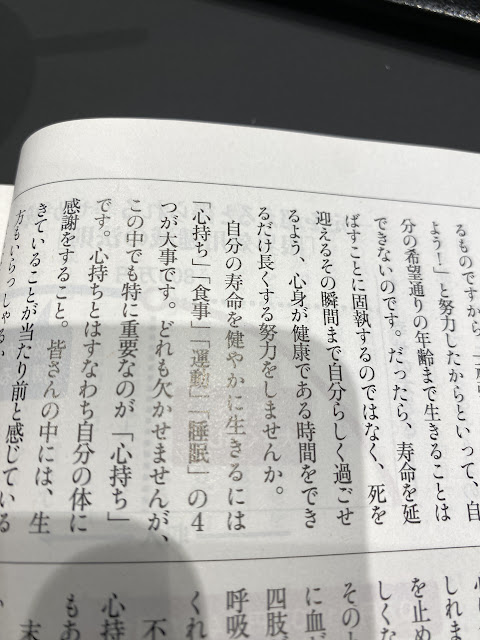 るものですから、
よう!」と努力したからといって、自
分の希望通りの年齢まで生きることは
できないのです。だったら、寿命を延
ばすことに固執するのではなく、死を
迎えるその瞬間まで自分らしく過ごせ
るよう、心身が健康である時間をでき
るだけ長くする努力をしませんか。
自分の寿命を健やかに生きるには
「心持ち」「食事」「運動」「睡眠」の4
つが大事です。どれも欠かせませんが、
この中でも特に重要なのが「心持ち」
です。心持ちとはすなわち自分の体に
感謝をすること。皆さんの中には、生
きていることが当たり前と感じている
方もいらっしゃるか
しれま
を止め
しくな
その上
に血が
四肢
呼吸
くれ
不
心持
もあ
末